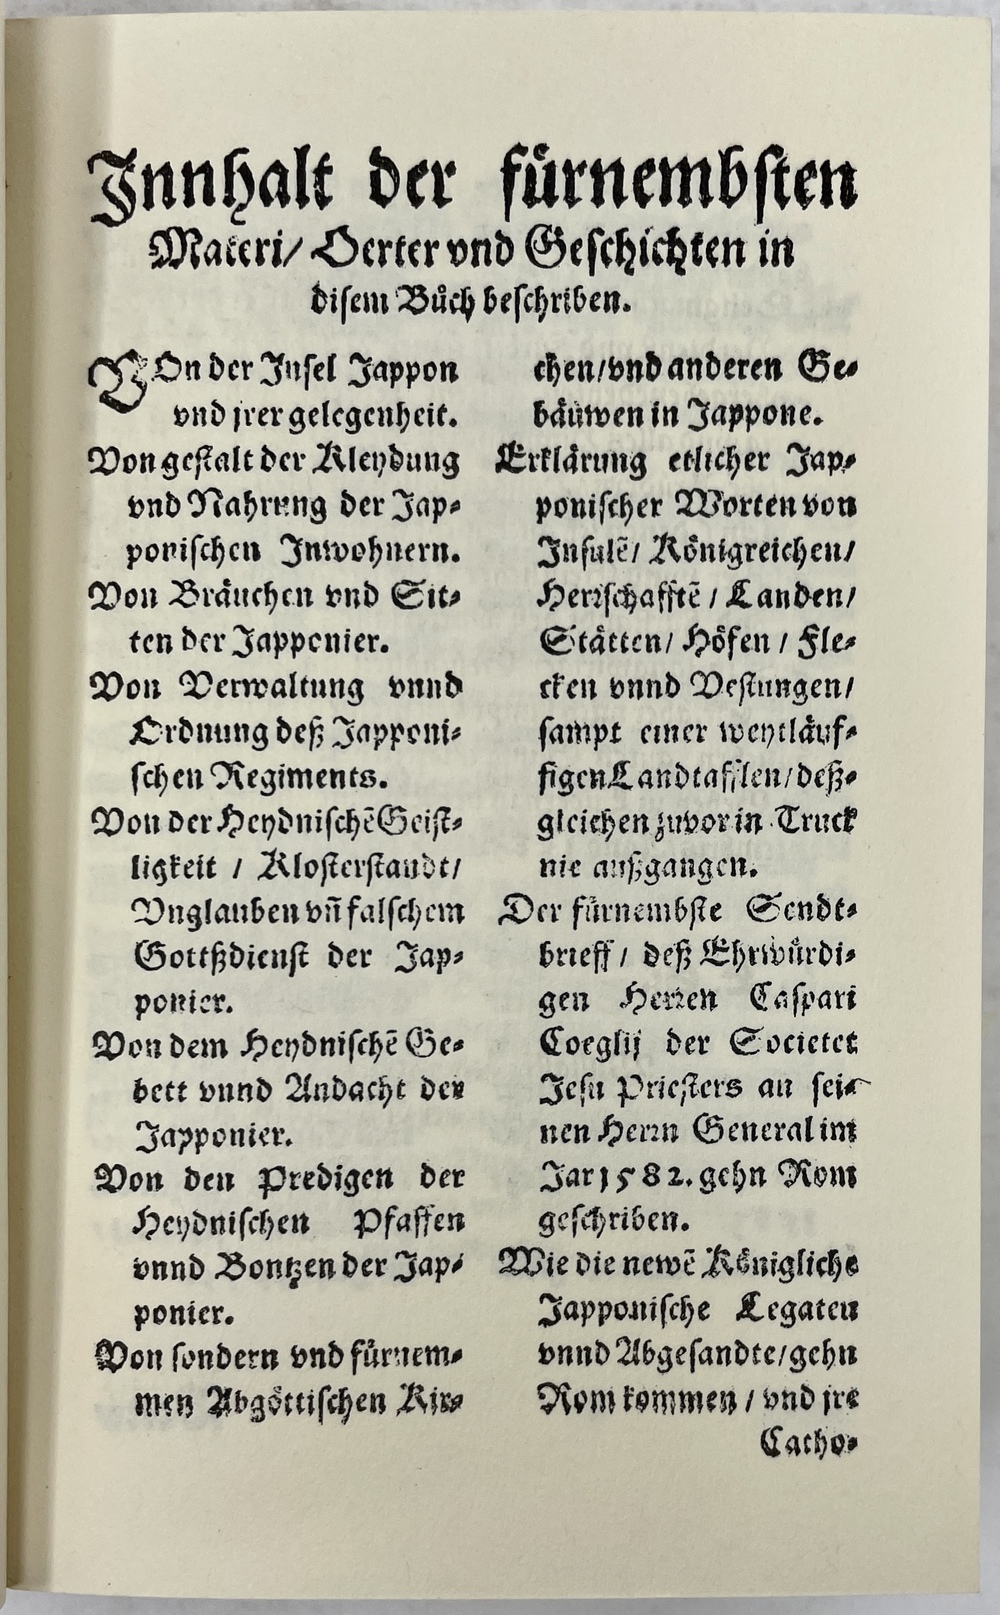 Innhalt der fürnembsten
Materi/ Oerter vnd Geschichten in
disem Bůch beschriben.
VOn der Insel Jappon
vnd jrer gelegenheit.
Von gestalt der Kleydung
vnd Nahrung der Jap-
ponischen Inwohnern.
Von Bräuchen vnd Sit-
ten der Japponier.
Von Verwaltung vnnd
Ordnung deß Japponi-
schen Regiments.
Von der Heydnischē Geist-
ligkeit / Klosterstandt/
Vnglauben vñ falschem
Gottßdienst der Jap-
ponier.
Von dem Heydnischē Ge-
bett vnnd Andacht der
Japponier.
Von den Predigen der
Heydnischen Pfaffen
vnnd Bontzen der Jap-
ponier.
Von sondern vnd fürnem-
men Abgöttischen Kir-
chen/vnd anderen Ge-
bäuwen in Jappone.
Erklärung etlicher Jap-
ponischer Worten von
Insulē/ Königreichen/
Herrschafftē / Landen/
Stätten/ Höfen / Fle-
cken vnnd Vestungen/
sampt einer weytläuf-
figen Landtafflen/deß-
gleichen zuvor in Truck
nie außgangen.
Der fürnembste Sendt-
brieff / deß Ehrwürdi-
gen Herren Caspari
Coeglij der Societet
Jesu Priesters an sei-
nen Herrn General im
Jar 1582. gehn Rom
geschriben.
Wie die newē Königliche
Japponische Legaten
vnnd Abgesandte/gehn
Rom kommen / vnd jre
Catho-